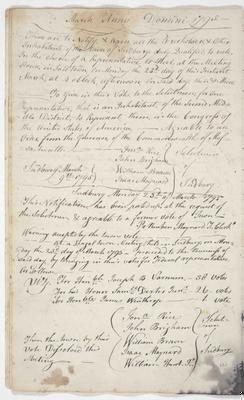 March Anno Domini 1795
These are to Notify & warn all the Freeholders & Other
Inhabitants of the Town of Sudbury duly Qualified to vote
in the choice of a Representative, to Meet at the Meeting
House in said Town on Monday the 23d day of this Instant
March at 2 oClock afternoon on said day then & there
To Give in their Vote to the Selectmen for One
Representative, that is an Inhabitant of the Second Middle
District, to Represent them in the Congress of
the United States of America — Agreable to an
order from the Governor of the Commonwealth of
Sudbury March 9th 1795
Jona. Rice
John Brigham
William Brown
Isaac Maynard
Selectmen of Sudbury
Sudbury Monday 23d of March 1795
This Notification has been posted at the request of
the Selectmen & agreable to a former vote of Town
Pr Reuben Maynard T. Clerk
Warning accepted by the town vote
at a Legal town Meeting held in Sudbury on Monday
the 23d day of March 1795. Proceeded to the business of
said day by bringing in their votes for Federal representatives
as follows
Viz. For Honble. Joseph B. Varnum — 58 votes
For his Honor Saml. Dexter Junr. 26 votes
For Honble. James Winthrop 1 vote
Then the town by their
vote Dissolved the
Meeting
Jona. Rice
John Brigham
William Brown
Isaac Maynard
William Hunt
Selectmen of Sudbury